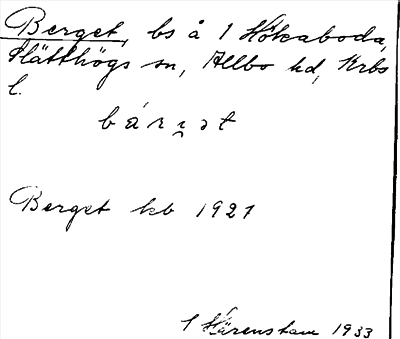 Berget, bs å 1 Hökaboda,
Slätthögs sn, Allbo hd, Krbs
l.
bárı̯ət
Berget kb 1921
1 Härenstam 1933